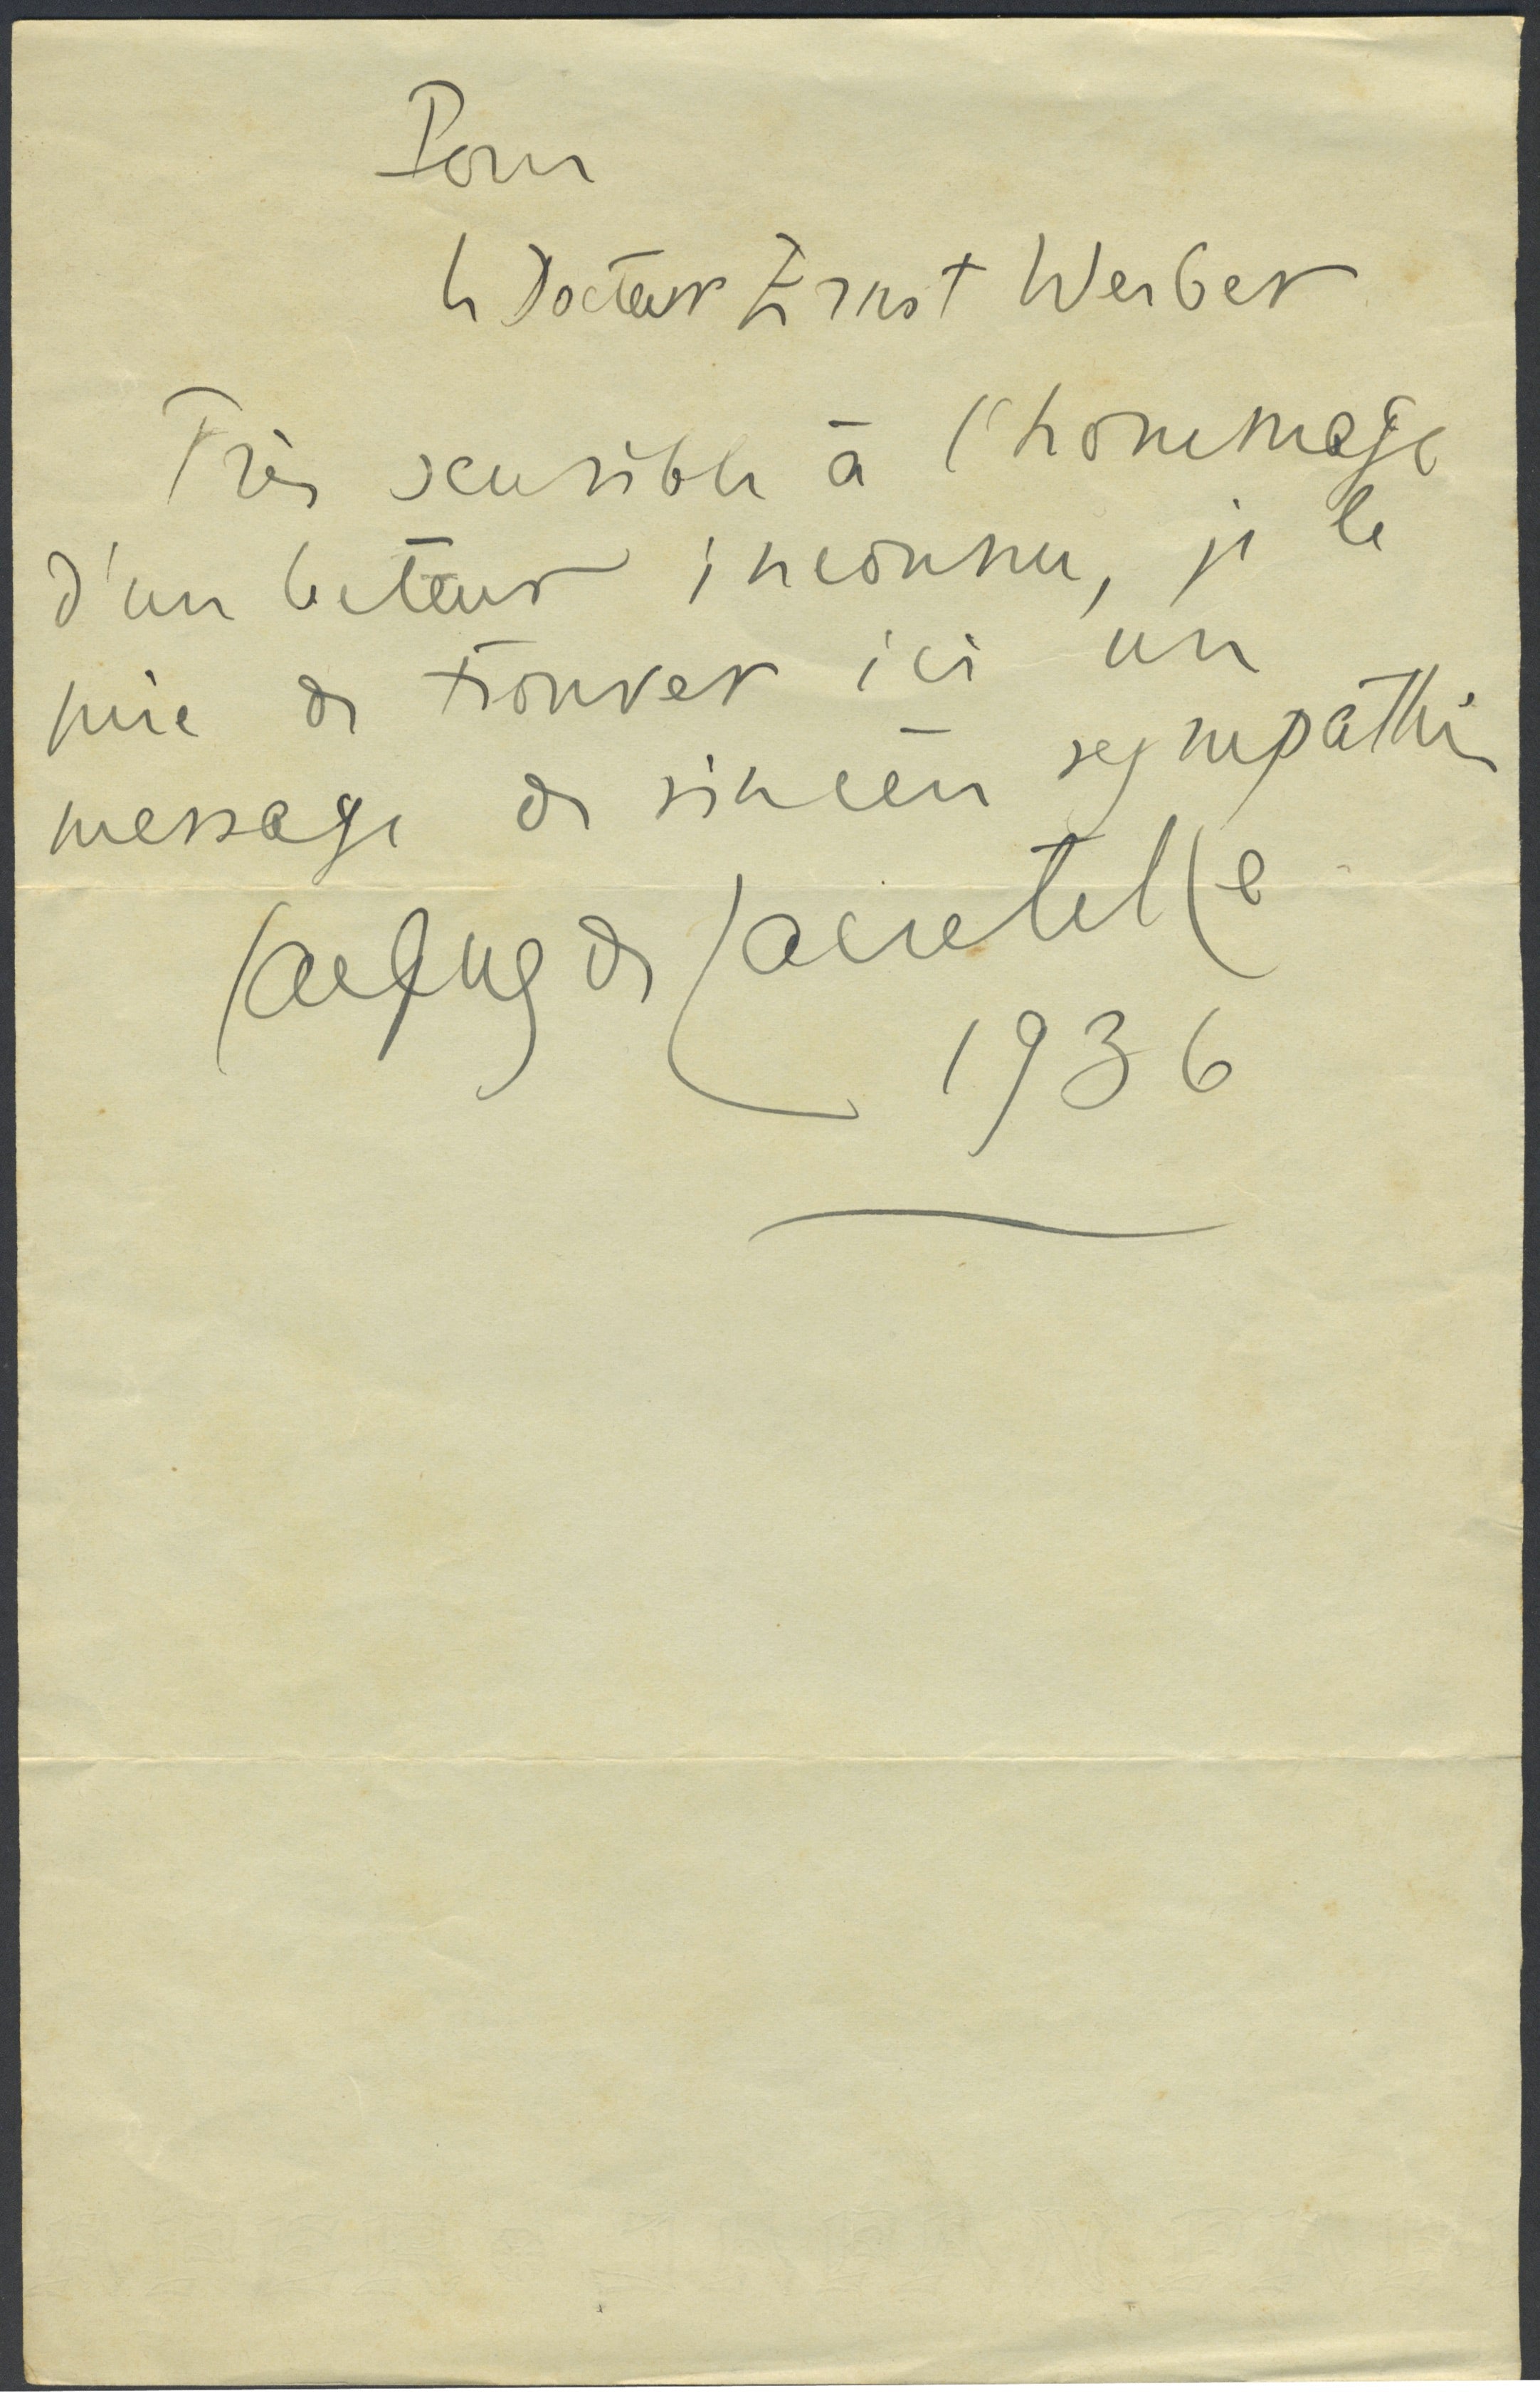 Pour
le Docteur Ernst Werber
Très sensible à l'hommage
d'un lecteur inconnu, je le
prie de trouver ici un
message de sincère sympathie
Jacques de Lacretelle
1936